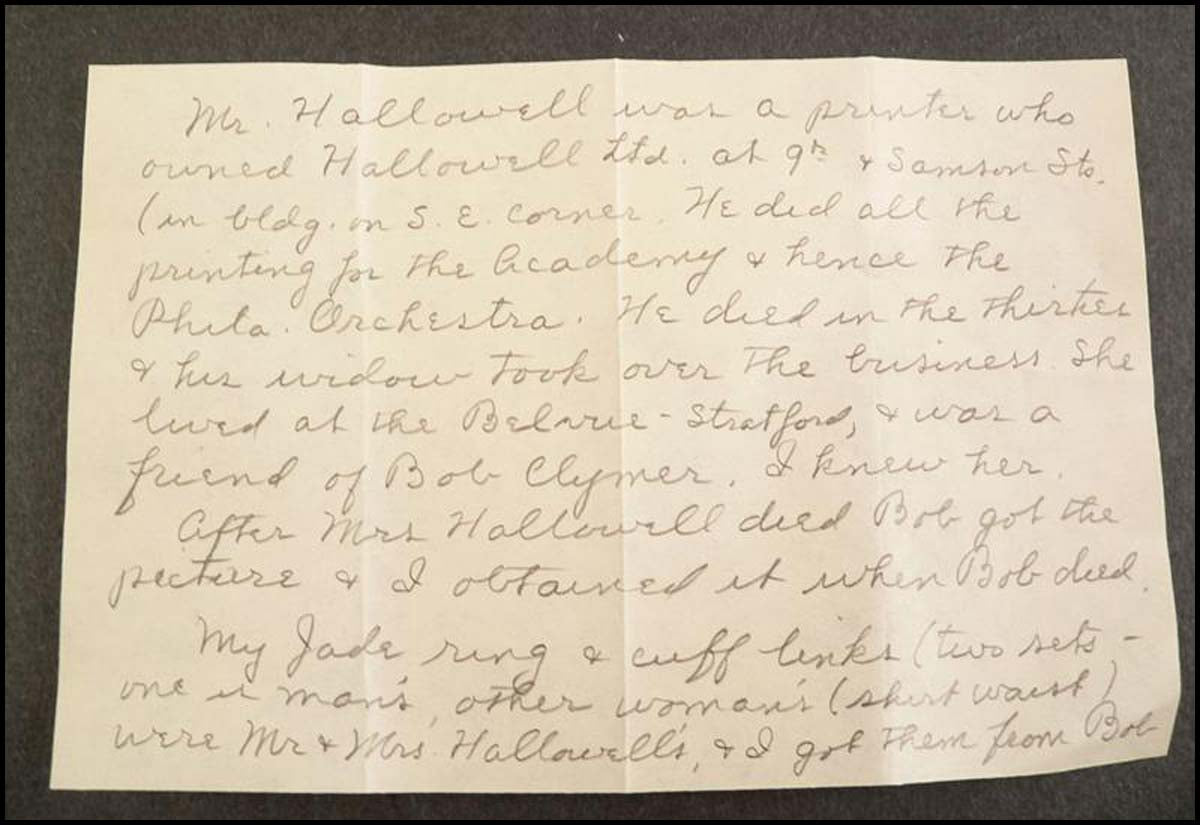 Mr. Hallowell was a printer who
owned Hallowell Ltd. at 9th & Samson Sts.
(in bldg. on S. E. corner. He did all the
printing for the Academy & hence the
Phila. Orchestra. He died in the thirties
& his widow took over the business. She
lived at the Belvue-Stratford, & was a
friend of Bob Clymer. I knew her.
After Mrs Hallowell died Bob got the
picture & I obtained it when Bob died.
My Jade ring & cuff links (two sets -
one is man's, other woman's (shirt waist)
were Mr & Mrs. Hallowell's, & I got them from Bob